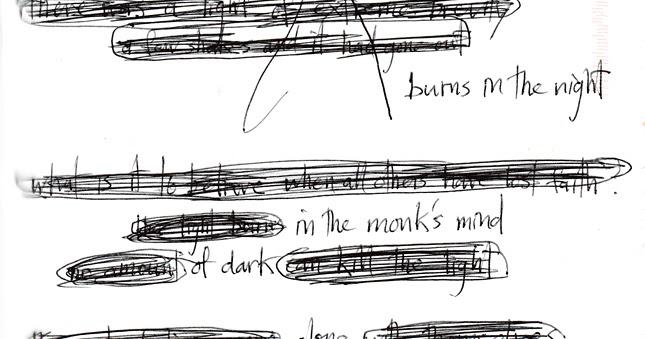 there was a light of extreme beauty
a few shakes and it had gone out
burns in the night
what is it to believe when all others have lost faith.
the light burns in the monk's mind
no amount of dark can kill the light.
alone with themselves